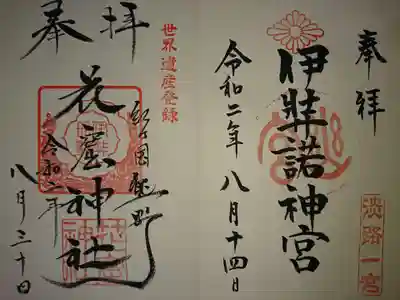 奉拝
伊弉諾神宮
令和二年八月十四日
淡路一宮
世界遺産登録
奉拝
花窟神社
令和二年
八月三十日